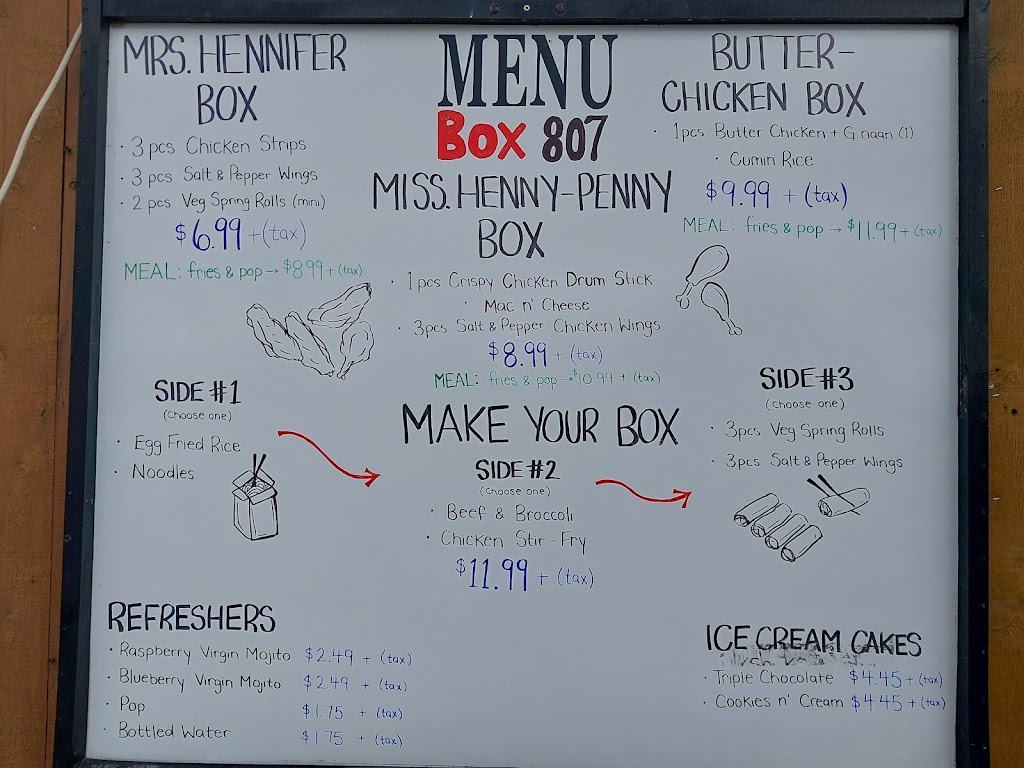 MENU
Box 807
MRS. HENNIFER
BOX
· 3 pcs Chicken Strips
· 3 pcs Salt & Pepper Wings
· 2 pcs Veg Spring Rolls (mini)
$6.99 + (tax)
MEAL: fries & pop → $8.99 + (tax)
MISS. HENNY-PENNY
BOX
· 1pcs Crispy Chicken Drum Stick
· Mac n' Cheese
· 3pcs Salt & Pepper Chicken Wings
$8.99 + (tax)
MEAL: fries & pop → $10.99 + (tax)
BUTTER-
CHICKEN BOX
· 1pcs Butter Chicken + G.naan (1)
· Cumin Rice
$9.99 + (tax)
MEAL: fries & pop → $11.99 + (tax)
MAKE YOUR BOX
SIDE #1
(choose one)
· Egg Fried Rice
· Noodles
SIDE #2
(choose one)
· Beef & Broccoli
· Chicken Stir-Fry
$11.99 + (tax)
SIDE #3
(choose one)
· 3pcs Veg Spring Rolls
· 3pcs Salt & Pepper Wings
REFRESHERS
· Raspberry Virgin Mojito $2.49 + (tax)
· Blueberry Virgin Mojito $2.49 + (tax)
· Pop $1.75 + (tax)
· Bottled Water $1.75 + (tax)
ICE CREAM CAKES
· Triple Chocolate $4.45 + (tax)
· Cookies n' Cream $4.45 + (tax)